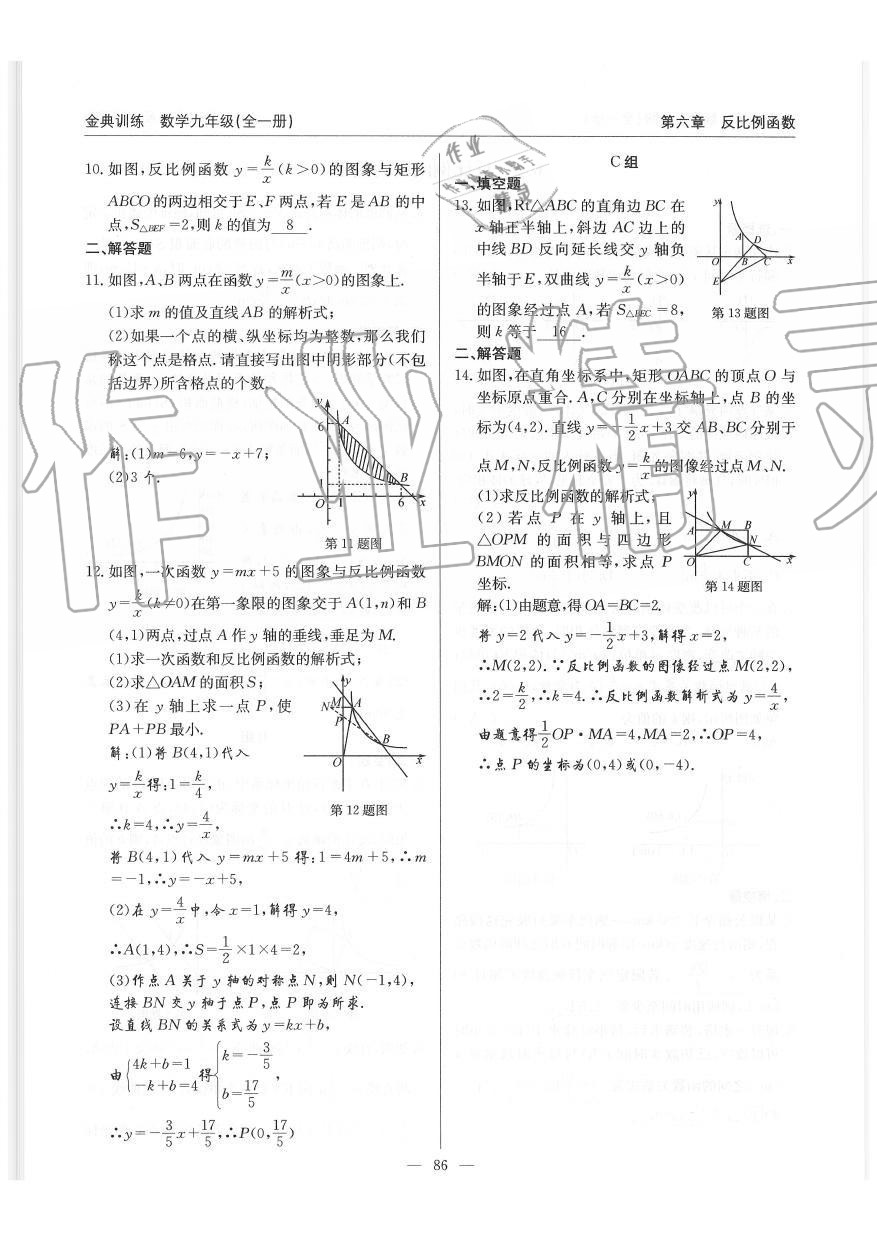 金典训练 数学九年级(全一册)
第六章 反比例函数
10. 如图,反比例函数 y=k/x(k>0)的图象与矩形
ABCO 的两边相交于 E、F 两点,若 E 是 AB 的中
点,S△BEF=2,则 k 的值为 8 .
二、解答题
11. 如图,A、B 两点在函数 y=m/x(x>0)的图象上.
(1)求 m 的值及直线 AB 的解析式;
(2)如果一个点的横、纵坐标均为整数,那么我们
称这个点是格点.请直接写出图中阴影部分(不包
括边界)所含格点的个数.
解:(1)m=6,y=-x+7;
(2)3 个.
y
6
A
B
1
O
1
6
x
第 11 题图
12. 如图,一次函数 y=mx+5 的图象与反比例函数
y=k/x(k≠0)在第一象限的图象交于 A(1,n)和 B
(4,1)两点,过点 A 作 y 轴的垂线,垂足为 M.
(1)求一次函数和反比例函数的解析式;
(2)求△OAM 的面积 S;
(3)在 y 轴上求一点 P,使
PA+PB 最小.
解:(1)将 B(4,1)代入
y=k/x得:1=k/4,
∴k=4,∴y=4/x,
y
N
M
A
P
B
O
x
第 12 题图
将 B(4,1)代入 y=mx+5 得:1=4m+5,∴m
=-1,∴y=-x+5,
(2)在 y=4/x中,令 x=1,解得 y=4,
∴A(1,4),∴S=1/2×1×4=2,
(3)作点 A 关于 y 轴的对称点 N,则 N(-1,4),
连接 BN 交 y 轴于点 P,点 P 即为所求.
设直线 BN 的关系式为 y=kx+b,
由{4k+b=1 -k+b=4 得{k=-3/5 b=17/5,
∴y=-3/5x+17/5,∴P(0,17/5)
C 组
一、填空题
13. 如图,Rt△ABC 的直角边 BC 在
x 轴正半轴上,斜边 AC 边上的
中线 BD 反向延长线交 y 轴负
半轴于 E,双曲线 y=k/x(x>0)
的图象经过点 A,若 S△BEC=8,
则 k 等于 16 .
y
A
D
O
B
C
x
E
第 13 题图
二、解答题
14. 如图,在直角坐标系中,矩形 OABC 的顶点 O 与
坐标原点重合.A,C 分别在坐标轴上,点 B 的坐
标为(4,2).直线 y=-1/2x+3 交 AB、BC 分别于
点 M,N,反比例函数 y=k/x的图像经过点 M、N.
(1)求反比例函数的解析式;
(2)若点 P 在 y 轴上,且
△OPM 的面积与四边形
BMON 的面积相等,求点 P
坐标.
y
A
M
B
N
O
C
x
第 14 题图
解:(1)由题意,得 OA=BC=2.
将 y=2 代入 y=-1/2x+3,解得 x=2,
∴M(2,2).∵反比例函数的图像经过点 M(2,2),
∴2=k/2,∴k=4.∴反比例函数解析式为 y=4/x,
由题意得1/2OP·MA=4,MA=2,∴OP=4,
∴点 P 的坐标为(0,4)或(0,-4).
— 86 —
作业精灵